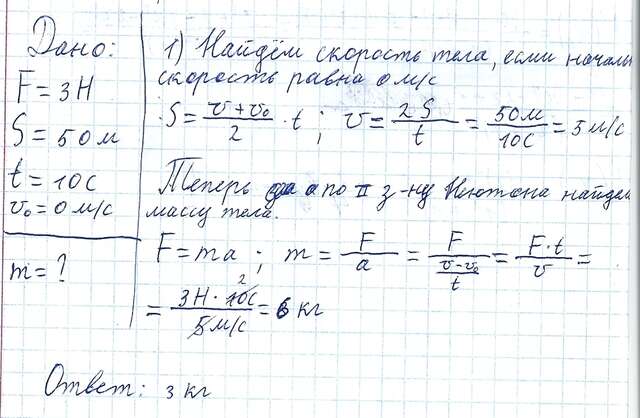 Дано:
F = 3Н
S = 50м
t = 10с
v₀ = 0 м/с
m = ?
1) Найдём скорость тела, если началь
скорость равна 0 м/с
S = (v + v₀)/2 · t ; v = 2S/t = 50м/10с = 5 м/с
Теперь по II з-ну Ньютона найдем
массу тела.
F = ma ; m = F/a = F/((v - v₀)/t) = F·t/v =
= 3Н · 10с/5м/с = 6 кг
Ответ: 3 кг